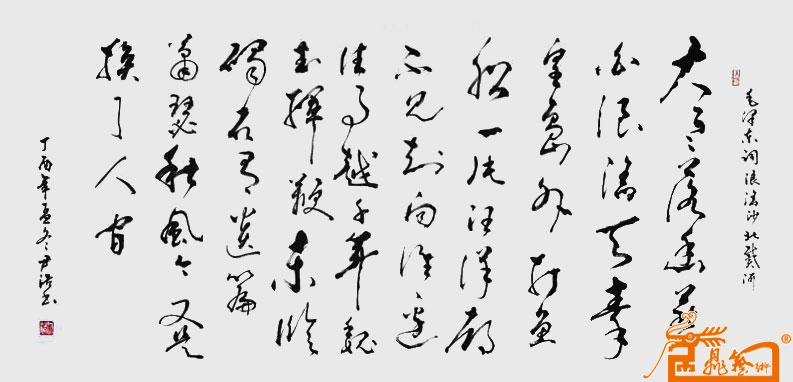 毛泽东词浪淘沙北戴河
大雨落幽燕
白浪滔天秦
皇島外打魚
船一片汪洋都
不见知向谁边
往事越千年魏
武揮鞭东临
碣石有遗篇
萧瑟秋風今又是
换了人间
丁酉年孟冬